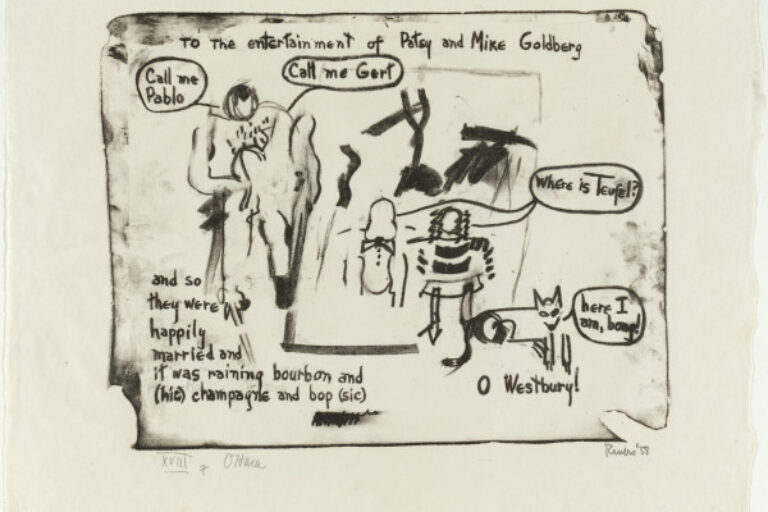 TO The entertainment of Patsy and Mike Goldberg
Call me
Pablo
Call me Gert
Where is Teufel?
here I
am, bong!
and so
they were
happily
married and
it was raining bourbon and
(hic) champagne and bop (sic)
O Westbury!
XVIII
O'Hara
Rivers '58